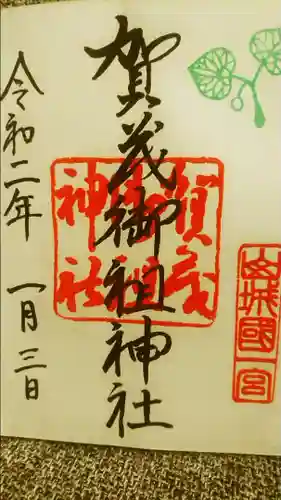 山城國一宮
賀茂御祖神社
賀茂御祖神社
令和二年 一月三日